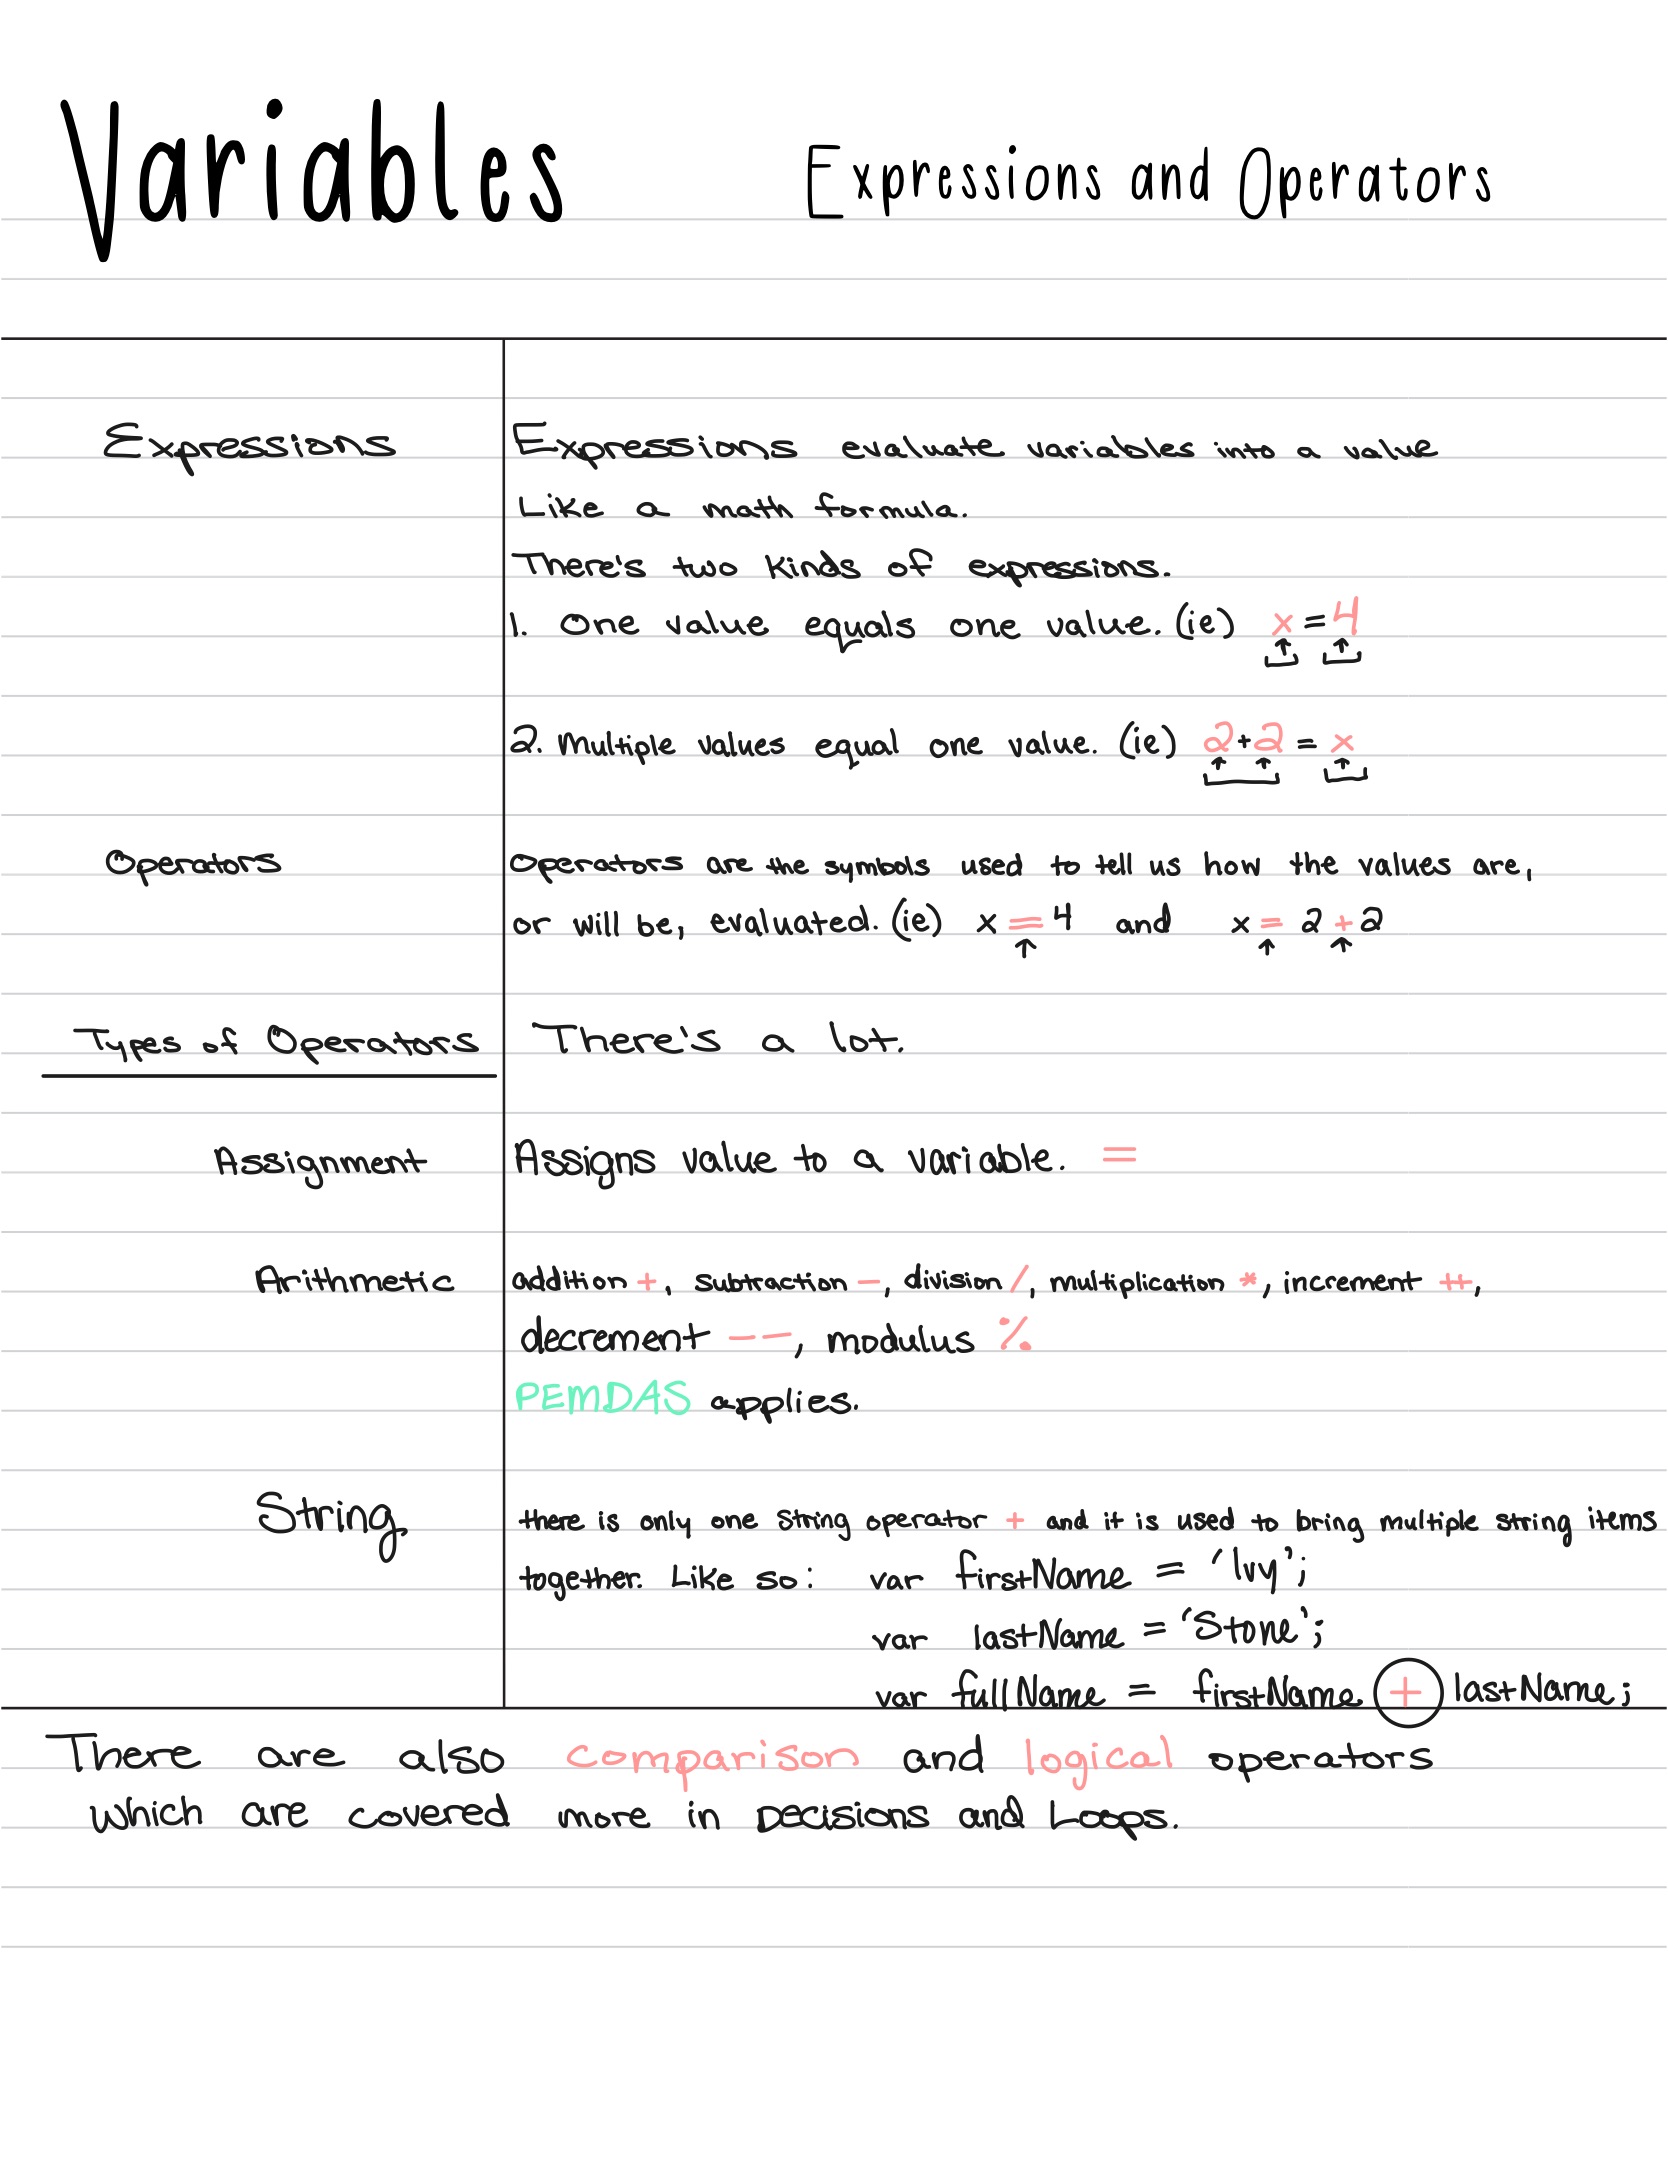 Variables
Expressions and Operators
Expressions
Expressions evaluate variables into a value
Like a math formula.
There's two kinds of expressions.
1. One value equals one value. (ie) x = 4
2. Multiple values equal one value. (ie) 2 + 2 = x
Operators
Operators are the symbols used to tell us how the values are,
or will be, evaluated. (ie) x = 4 and x = 2 + 2
Types of Operators
There's a lot.
Assignment
Assigns value to a variable. =
Arithmetic
addition +, subtraction -, division /, multiplication *, increment ++,
decrement --, modulus %
PEMDAS applies.
String
there is only one string operator + and it is used to bring multiple string items
together. Like so: var firstName = 'Ivy';
var lastName = 'Stone';
var fullName = firstName + lastName;
There are also comparison and logical operators
which are covered more in Decisions and Loops.